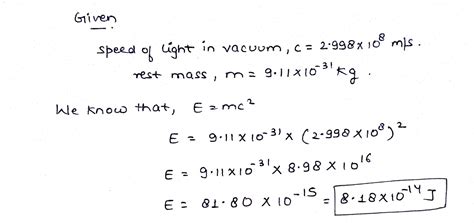 Given
speed of light in vacuum, c = 2.998 × 10⁸ m/s.
rest mass, m = 9.11 × 10⁻³¹ kg.
We know that, E = mc²
E = 9.11 × 10⁻³¹ × (2.998 × 10⁸)²
E = 9.11 × 10⁻³¹ × 8.98 × 10¹⁶
E = 81.80 × 10⁻¹⁵ = 8.18 × 10⁻¹⁴ J